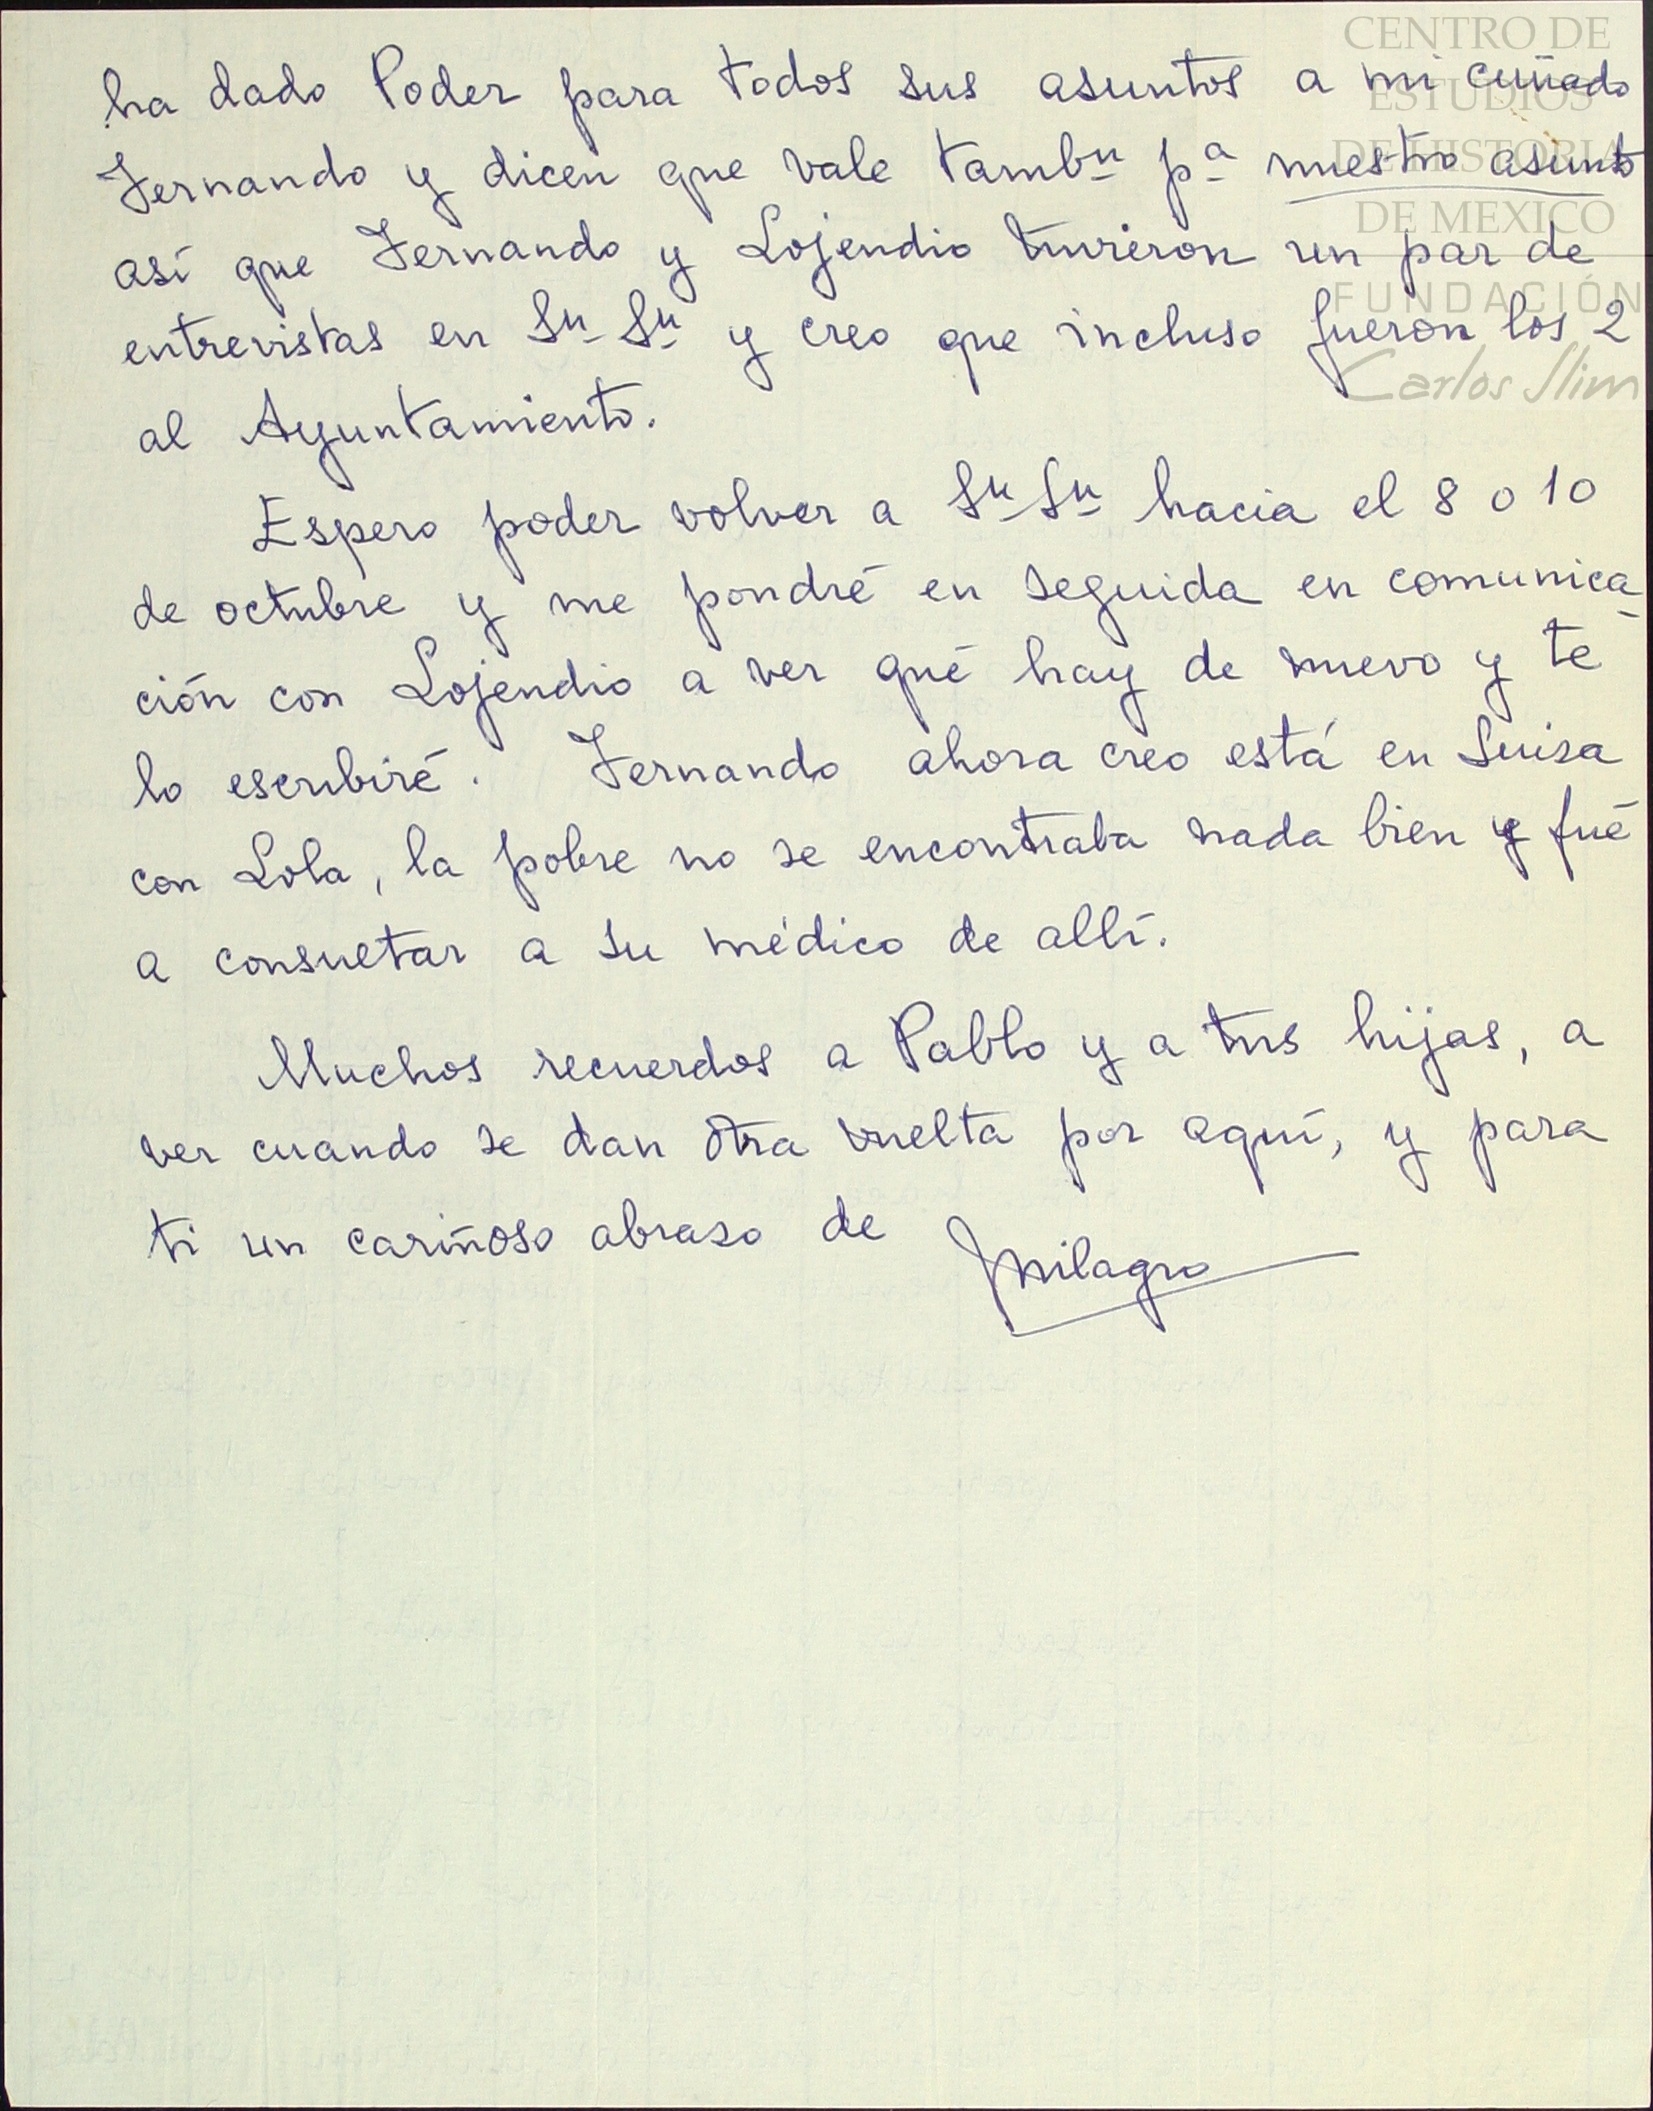 CENTRO DE
ESTUDIOS
DE HISTORIA
DE MEXICO
FUNDACIÓN
Carlos Slim
ha dado Poder para todos sus asuntos a mi cuñado
Fernando y dicen que vale tambn pa nuestro asunto
así que Fernando y Lojendio tuvieron un par de
entrevistas en Sn Sn y creo que incluso fueron los 2
al Ayuntamiento.
Espero poder volver a Sn Sn hacia el 8 o 10
de octubre y me pondré en seguida en comunica-
ción con Lojendio a ver qué hay de nuevo y te
lo escribiré. Fernando ahora creo está en Suiza
con Lola, la pobre no se encontraba nada bien y fué
a consultar a su médico de allí.
Muchos recuerdos a Pablo y a tus hijas, a
ver cuando se dan otra vuelta por aquí, y para
ti un cariñoso abrazo de Milagro